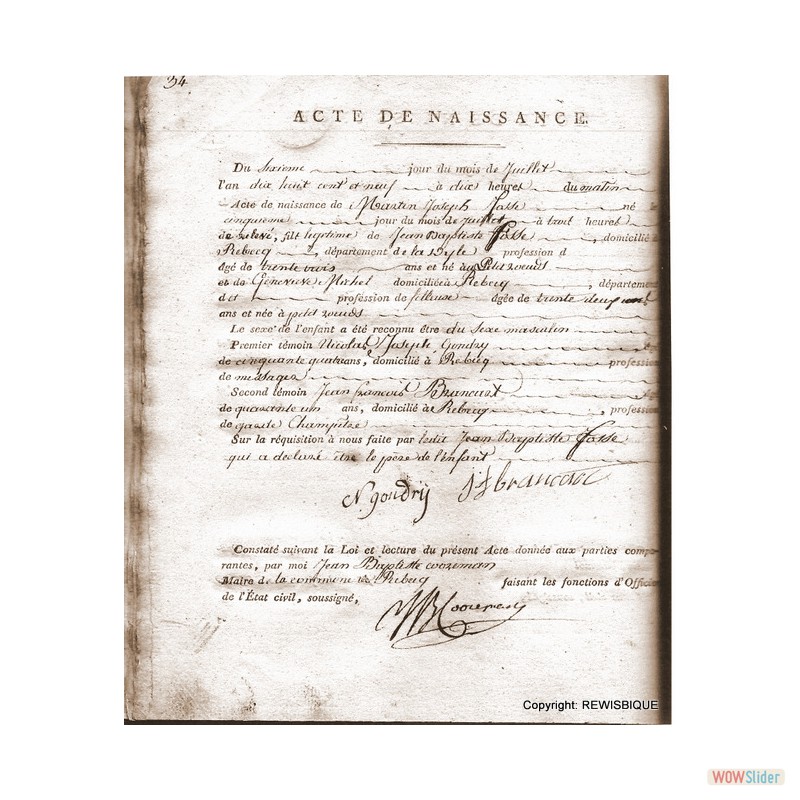 34
ACTE DE NAISSANCE.
Du sixieme jour du mois de Juillet
l'an dix huit cent et neuf à dix heures du matin
Acte de naissance de Martin Joseph Fasse né le
cinquieme jour du mois de Juillet à trois heures
de relevé, fils legitime de Jean Baptiste Fasse, domicilié à
Rebecq, département de la Dyle profession d
âgé de trente trois ans et né au Petit roeulx
et de Genevieve Michel domiciliée à Rebecq, département
d profession de fileuse âgée de trente deux
ans et née à petit roeulx
Le sexe de l'enfant a été reconnu être du sexe masculin
Premier témoin Nicolas Joseph Gondry
de cinquante quatre ans, domicilié à Rebecq profession
de messager
Second témoin Jean francois Brancart
de quarante un ans, domicilié à Rebecq, profession
de garde Champetre
Sur la réquisition à nous faite par ledit Jean Baptiste Fasse
qui a declaré être le pere de l'enfant
N. gondrij
j f brancart
Constaté suivant la Loi et lecture du présent Acte donnée aux parties compa-
rantes, par moi Jean Baptiste
Maire de la commune de Rebecq faisant les fonctions d'Officier
de l'État civil, soussigné,
Copyright: REWISBIQUE
WOWSlider